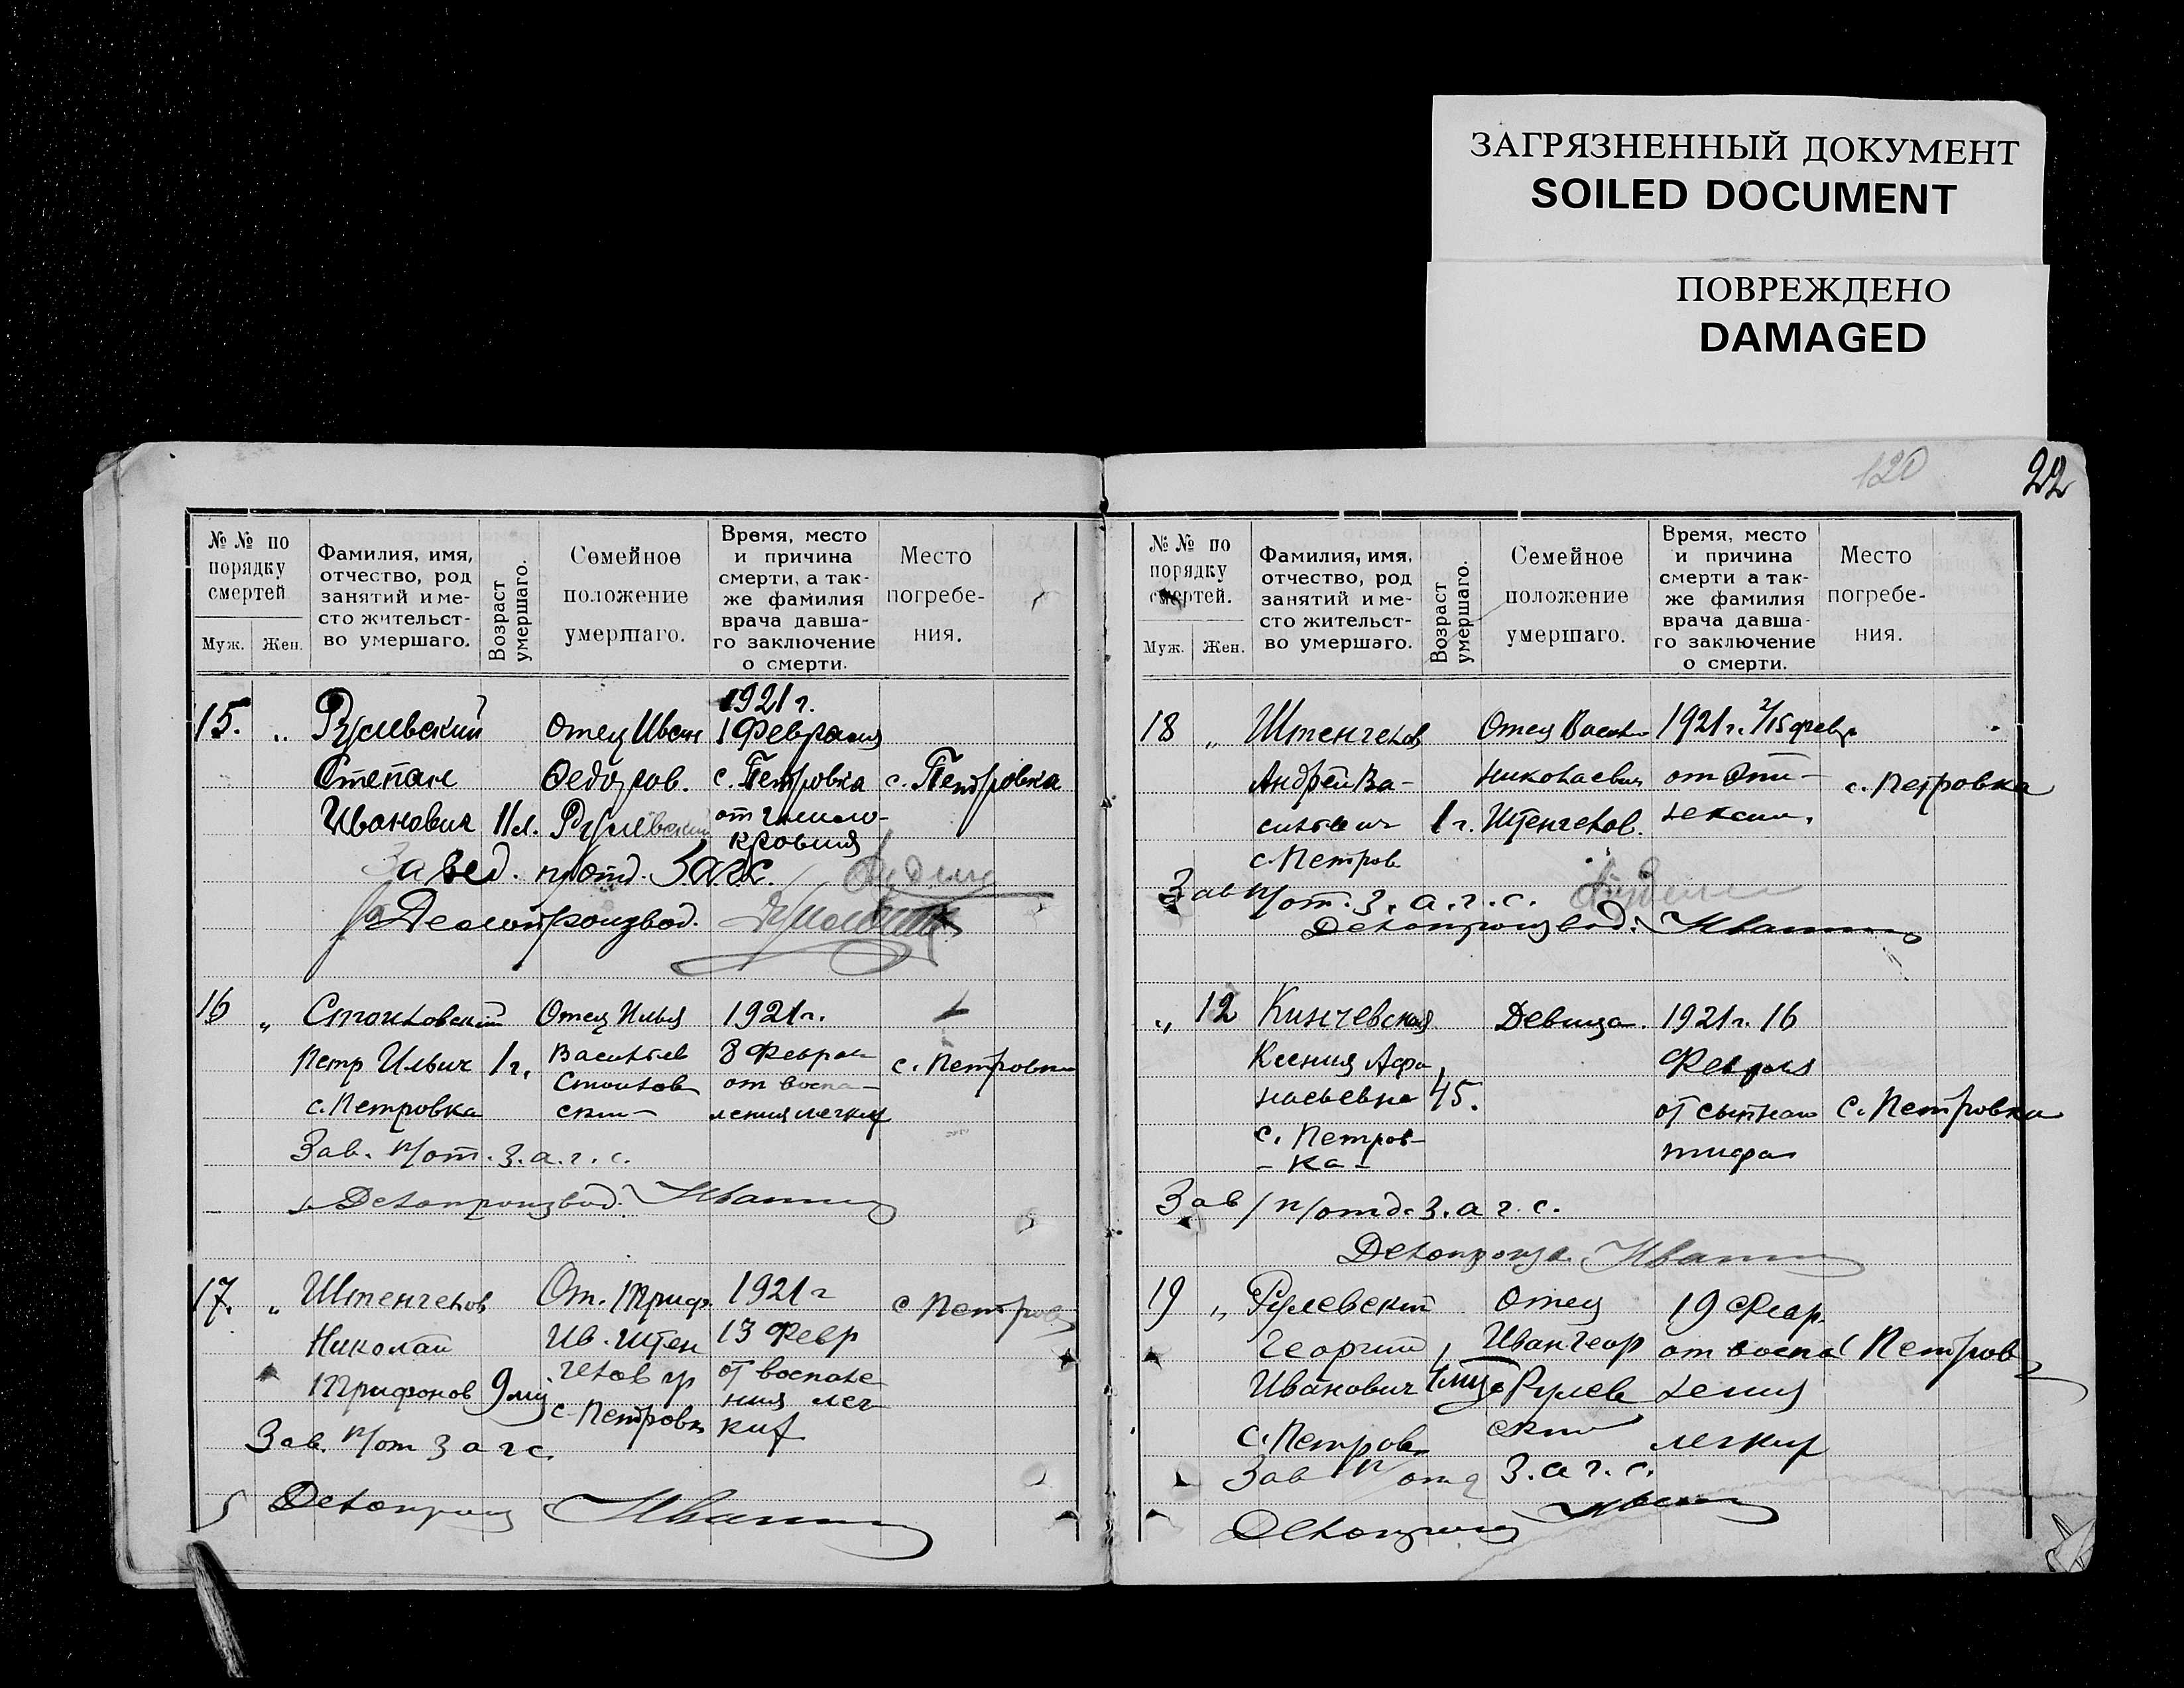 ЗАГРЯЗНЕННЫЙ ДОКУМЕНТ
SOILED DOCUMENT
ПОВРЕЖДЕНО
DAMAGED
120
22
№ № по порядку смертей
Муж. Жен.
Фамилия, имя, отчество, род занятий и место жительство умершаго.
Возраст умершаго.
Семейное положение умершаго.
Время, место и причина смерти, а также фамилия врача давшаго заключение о смерти.
Место погребения.
15. „ Рулевский Отец Иван 1921 г. 1 Февраля
Степан Федоров. с. Петровка с. Петровка
Иванович 11 л. Рулевский от
кровия
Завед. п/отд. Загс.
Делопроизвод.
16 „ Стоиловский Отец Илья 1921 г.
Петр Ильич 1 г. Васильев 8 Феврал с. Петровка
с. Петровка Стоилов от воспа-
ски- ления легких
Зав. п/от. з.а.г.с.
Делопроизвод.
17. „ Штенгелов От. Триф. 1921 г с Петров
Николай Ив. Штен 13 Февр
Трифонов 9 гелов гр от воспале-
с. Петровк ния лег
ких
Зав. п/от з а г с.
Делопроиз
№ № по порядку смертей.
Муж. Жен.
Фамилия, имя, отчество, род занятий и место жительство умершаго.
Возраст умершаго.
Семейное положение умершаго.
Время, место и причина смерти а также фамилия врача давшаго заключение о смерти.
Место погребения.
18 „ Штенгелов Отец Васил 1921 г. 2/15 февр.
Андрей Ва- Николаевич от Эпи- с. Петровка
сильевич 1 г. Штенгелов. лексии.
с. Петров
Зав п/от. з. а. г. с.
Делопроизвод.
„ 12 Кинчевская Девица. 1921 г. 16
Ксения Афа Февраля
насьевна 45. от сыпнаго с. Петровка
с. Петров- тифа
- ка -
Зав / п/отд. з. а г. с.
Делопроизв.
19 „ Рулевский Отец 19 Февр.
Георгий Иван Геор от воспа с Петров
Иванович 1 Рулев ления
с. Петров ский легких
Зав п/отд з. а г. с.
Делопроиз